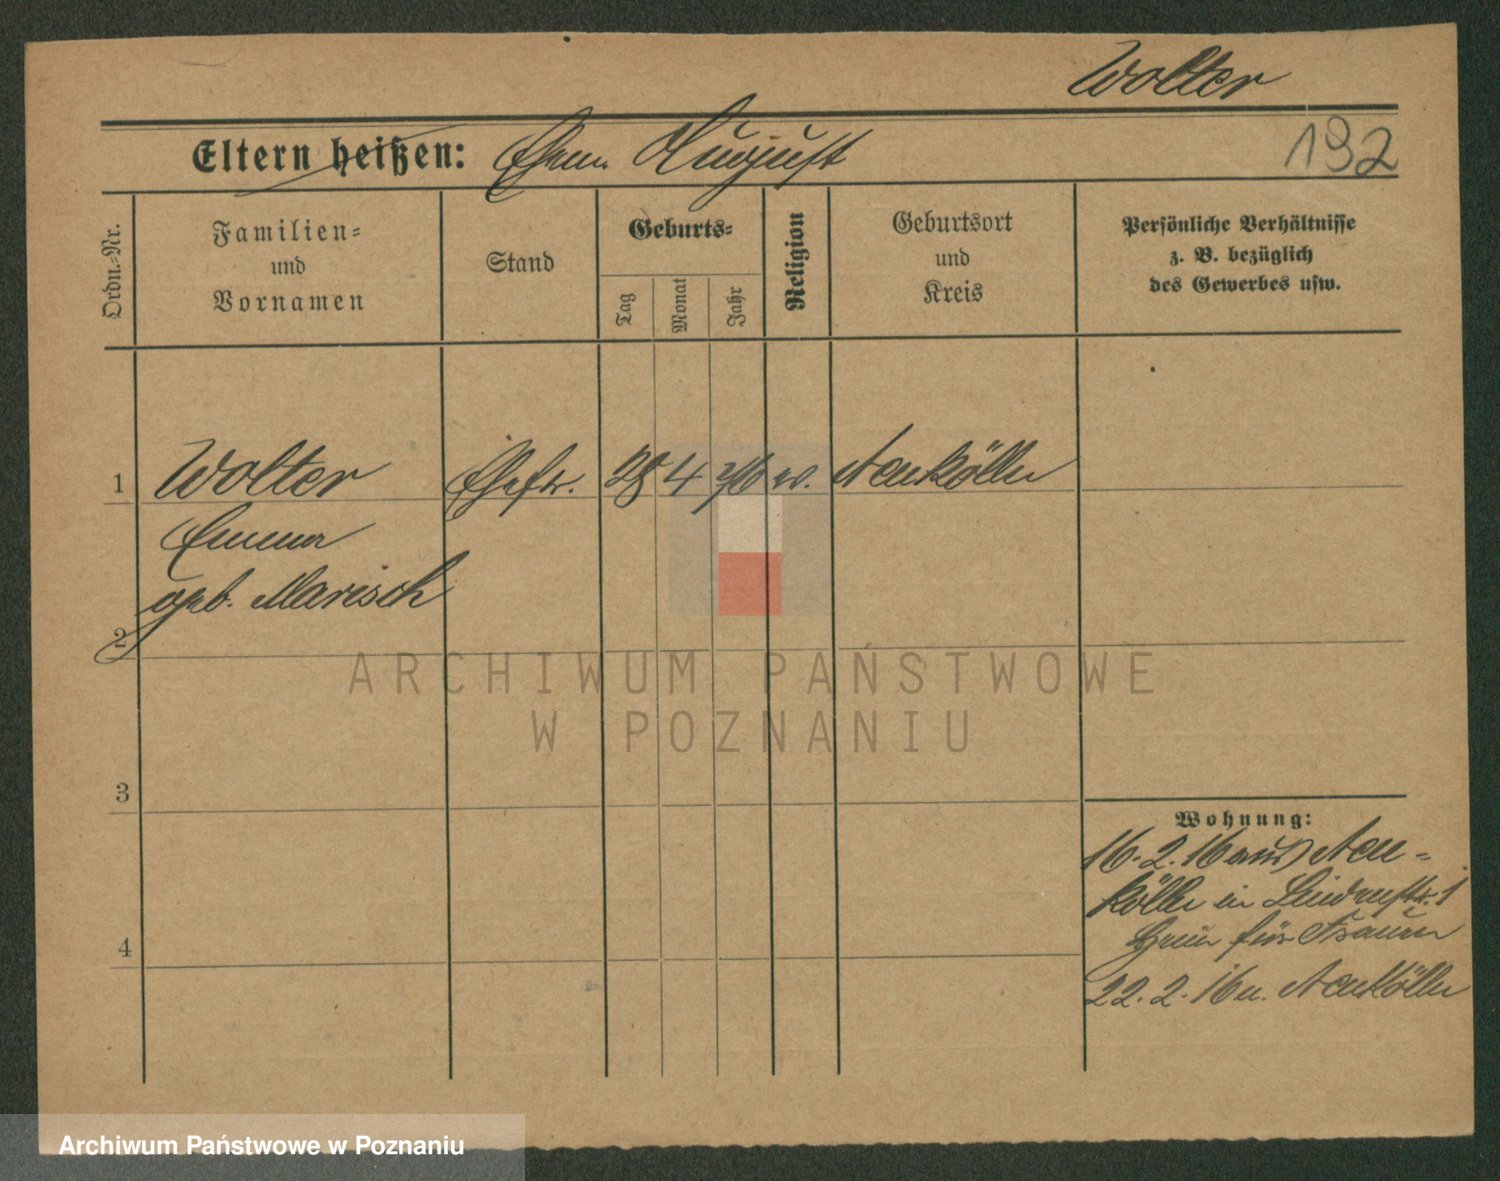 Wolter
Eltern heißen: Ehem. August
192
Ordn.-Nr.
Familien-
und
Vornamen
Stand
Geburts-
Tag
Monat
Jahr
Religion
Geburtsort
und
Kreis
Persönliche Verhältnisse
z. B. bezüglich
des Gewerbes usw.
1 Wolter Ehefr. 28 4 76 ev. Neukölln
Emma
geb. Marisch
2
3
4
Wohnung:
16. 2. 16 aus Neu-
kölln in Lindenstr. 1
Heim für Frauen
22. 2. 16 n. Neukölln
ARCHIWUM PAŃSTWOWE
W POZNANIU
Archiwum Państwowe w Poznaniu